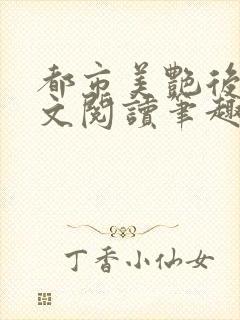 都市美艷後
文閱讀筆趣
丁香小仙女